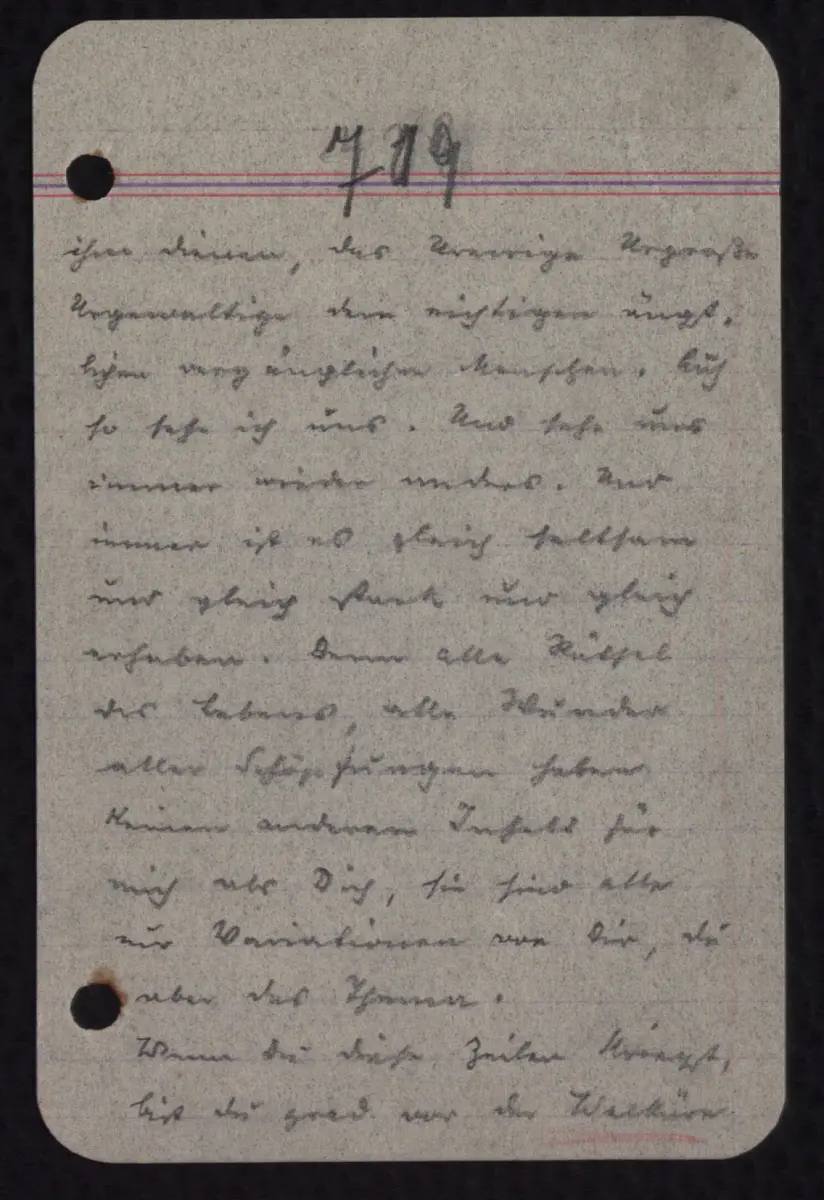 719
ihm dienen, das Urewige Urgroße
Urgewaltige dem nichtigen ängst-
lichen vergänglichen Menschen. Auch
so sehe ich uns. Und sehe uns
immer wieder anders. Und
immer ist es gleich seltsam
und gleich stark und gleich
erhaben. Denn alle Rätsel
des Lebens, alle Wunder
aller Schöpfungen haben
keinen anderen Inhalt für
mich als Dich, sie sind alle
nur Variationen von Dir, du
aber das Thema.
Wenn Du diese Zeilen kriegst,
bist du grad vor der Walküre